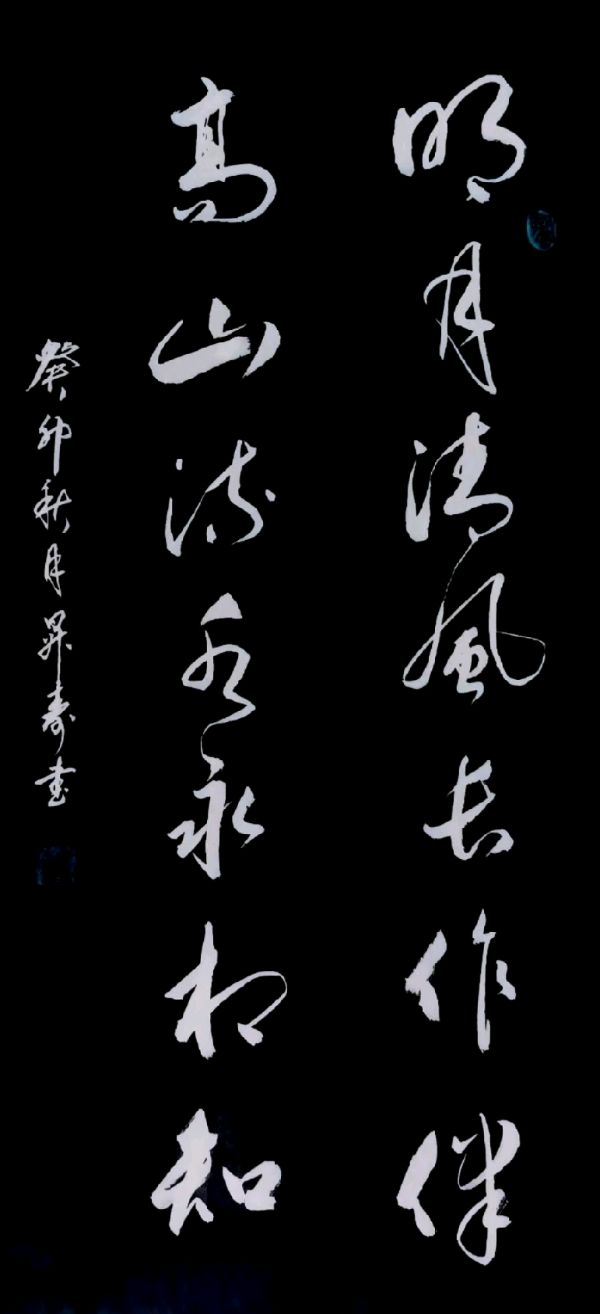 明月清风长作伴
高山流水永相知
癸卯秋月昇寿书